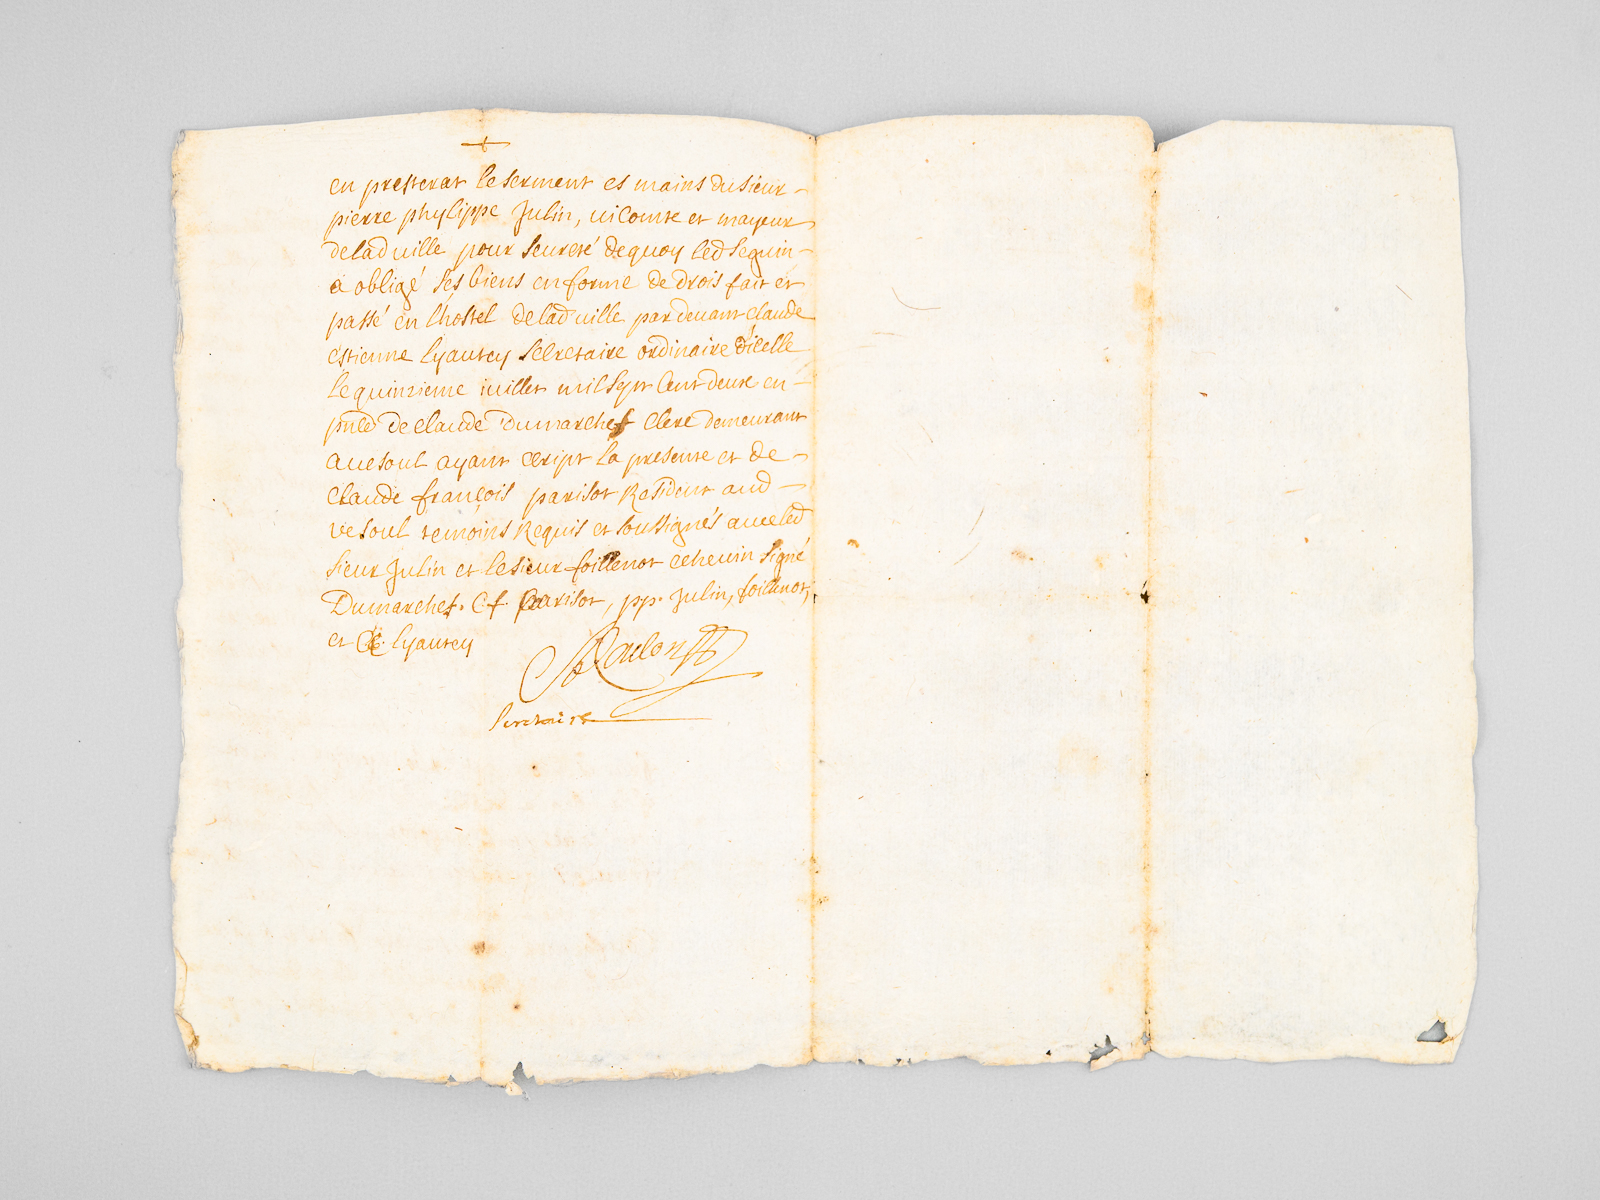 en presterat le serment es mains du sieur
pierre phylippe Julin, vicomte et mayeur
de lad ville pour seureté de quoy led Seguin
a obligé ses biens en forme de drois fait et
passé en lhostel de lad ville par devant claude
estienne lyautey secretaire ordinaire d'icelle
le quinzieme iuillet mil sept cent deux en
pnce de claude Dumarchef clerc demeurant
a uesoul ayant escript la presente et de
Claude françois parisot Resident aud
vesoul temoins Requis et soussignés avec led
sieur Julin et le sieur foillenot echevin signé
Dumarchef. C f. parisot, pp. Julin, foillenot,
et CE. lyautey
secretaire